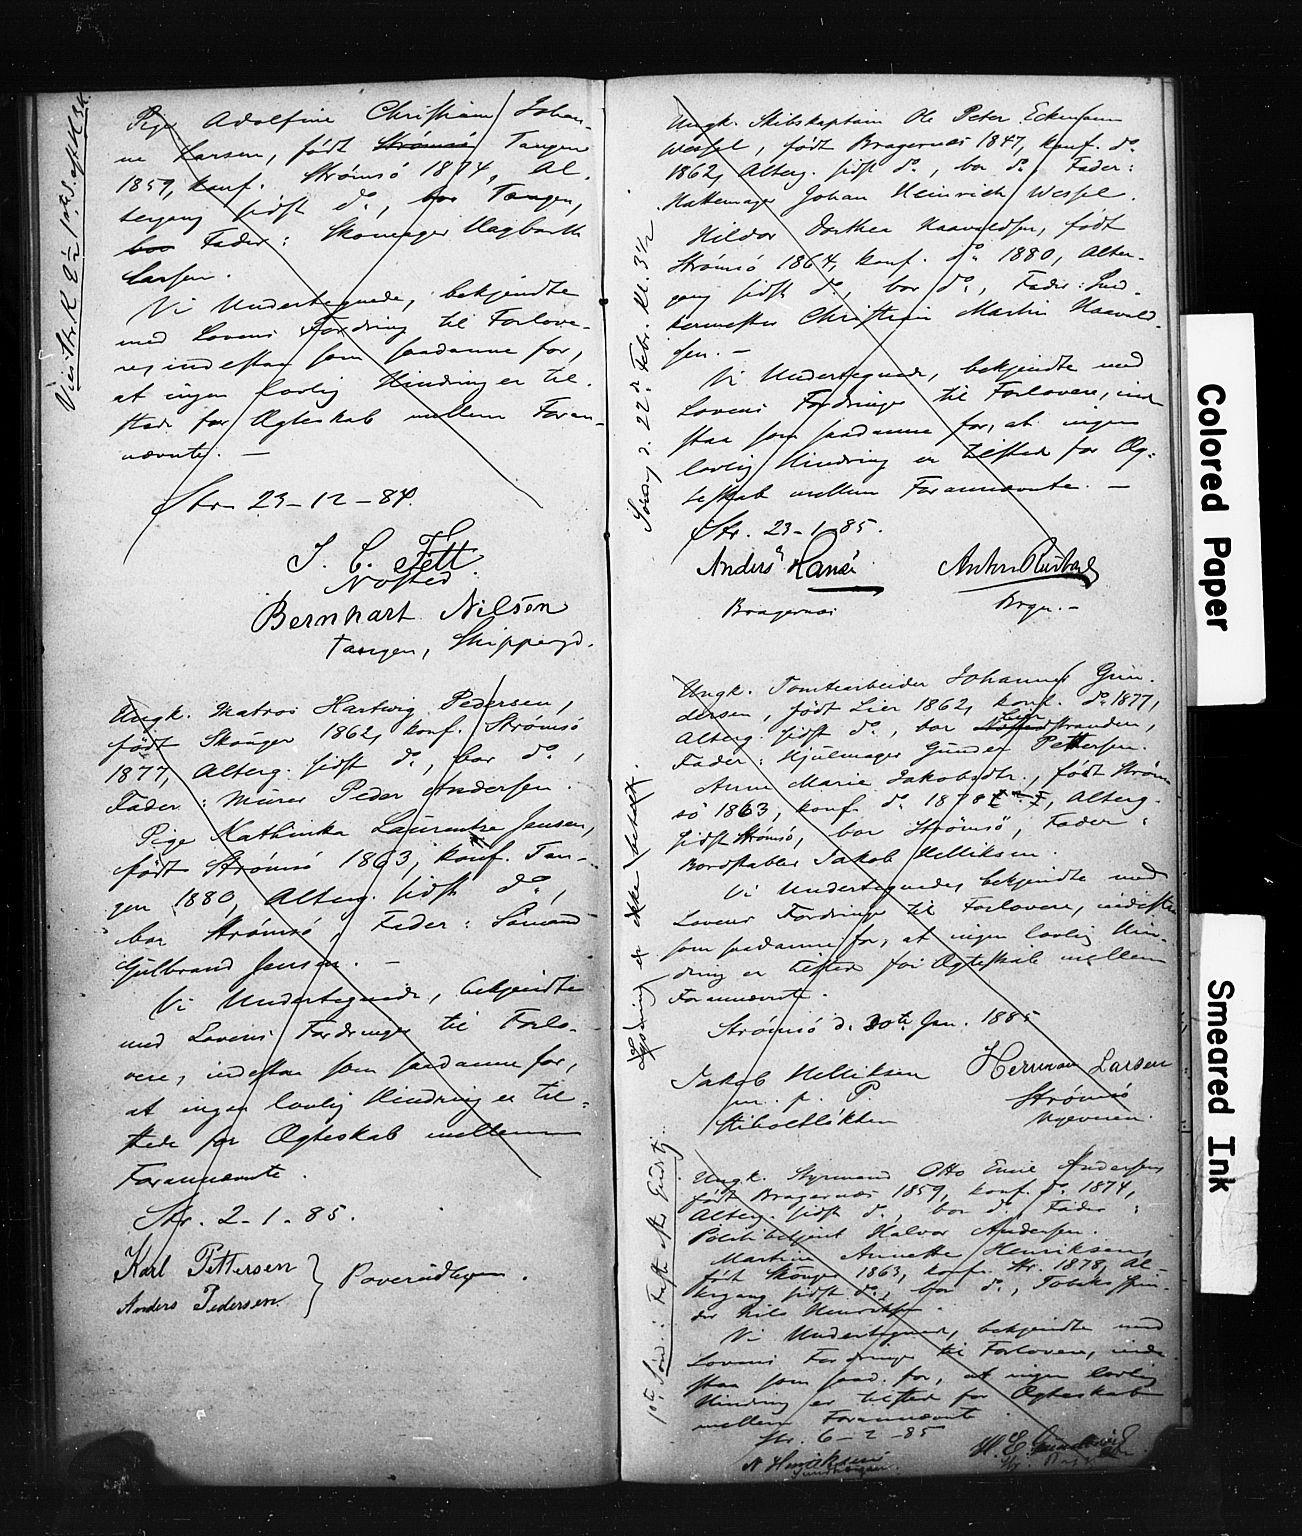 Pige Adolfine Christiane Johan-
ne Larsen, født Strømsö Tangen
1859, konf. Strømsö 1874, Al-
tergang sidst do, bor Tangen,
bor Fader: Skomager Hagbarth
Larsen.
Vi Undertegnede, bekjendte
med Lovens Fordring til Forlove-
re, indestaa som saadanne for,
at ingen lovlig Hindring er til-
stede for Ægteskab mellem Foran-
nævnte. —
Str. 23-12-84.
J. C. Fett
Nøsted.
Bernhart Nilsen
Tangen, Skippergd.
Ungk. Matros Hartvig Pedersen,
født Skouger 1862, konf. Strømsö
1877, Alterg. sidst do, bor do,
Fader: Murer Peder Andersen.
Pige Kathinka Laurentze Jensen,
født Strømsö 1863, konf. Tan-
gen 1880, Alterg. sidst do,
bor Strømsö, Fader: Sømand
Gulbrand Jensen. —
Vi Undertegnede, bekjendte
med Lovens Fordringer til Forlo-
vere, indestaa som saadanne for,
at ingen lovlig Hindring er til-
stede for Ægteskab mellem
Forannævnte.
Str. 2-1-85.
Karl Pettersen
Anders Pedersen
Ungk. Skibskaptain Ole Peter Eckmann
Wessel, født Bragernæs 1847, konf. do
1862, Alterg. sidst do, bor do, Fader:
Hattemager Johan Heinrich Wessel.
Hilda Dorthea Haavaldsen, født
Strømsö 1864, konf. do 1880, Alter-
gang sidst do, bor do, Fader:
Christian Martin Haavald-
sen. —
Vi Undertegnede, bekjendte med
Lovens Fordringer til Forlovere, inde
staa som saadanne for, at ingen
lovlig Hindring er tilstede for Æg-
teskab mellem Forannævnte. —
Str. 23-1-85.
Anders Hansen
Bragernæs
Søndag d. 22de Febr. Kl. 3½
Ungk. Tomtearbeider Johannes Gun-
dersen, født Lier 1862, konf. do 1877,
Alterg. sidst do, bor Lierstranden,
Fader: Hjulmager Gunder Pettersen.
Anne Marie Jakobsdtr., født Strøm
sö 1863, konf. do 1878, Alterg.
sidst Strømsö, bor Strømsö, Fader:
Bordstabler Jakob Helliksen.
Vi Undertegnede, bekjendte med
Lovens Fordringer til Forlovere, indestaa
som saadanne for, at ingen lovlig Hin-
dring er tilstede for Ægteskab mellem
Forannævnte.
Strømsö d. 30te Jan. 1885
Jakob Helliksen
m. p. P.
Herman Larsen
Strømsö
Lysning er ikke betalt.
Ungk. Styrmand Otto Emil Andersen
født Bragernæs 1859, konf. do 1874,
Alterg. sidst do, bor do, Fader:
Politibetjent Halvor Andersen.
Martine Annette Henriksen,
født Skouger 1863, konf. Str. 1878, Al-
tergang sidst do, bor do, Tobaksspin-
der Nils Henriksen.
Vi Undertegnede, bekjendte med
Lovens Fordringer til Forlovere, inde
staa som saad. for, at ingen lovlig
Hindring er tilstede for Ægteskab
mellem Forannævnte
Str. 6-2-85
N Henriksen
Colored Paper
Smeared Ink